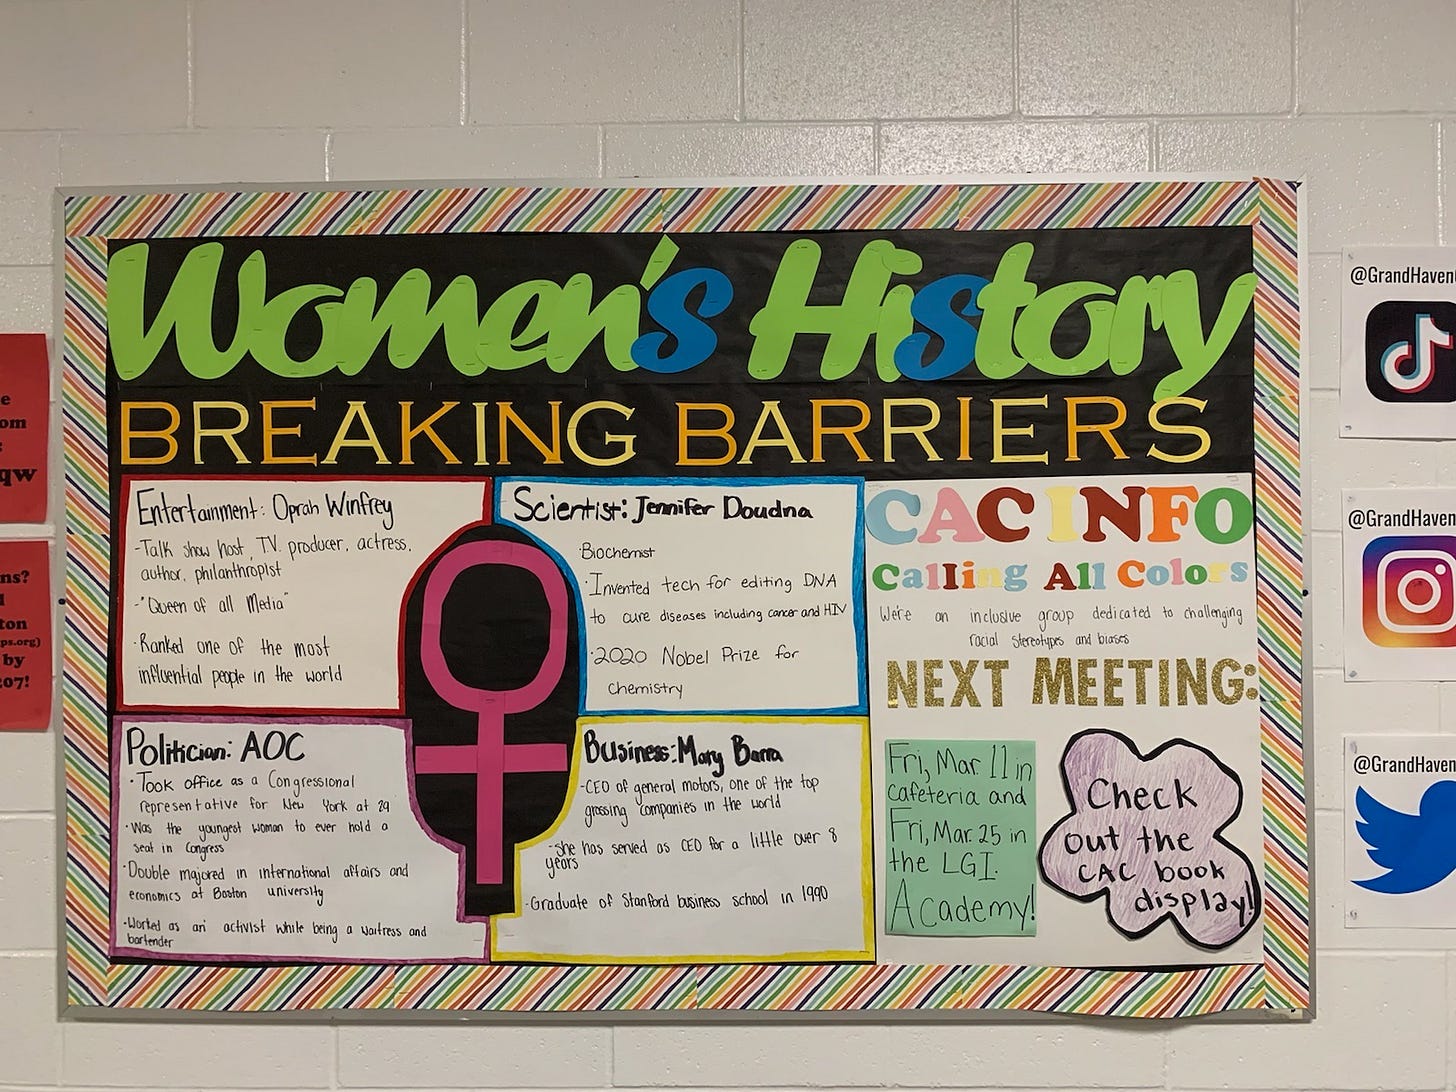 Women's History
BREAKING BARRIERS
Entertainment: Oprah Winfrey
-Talk show host, TV. producer, actress,
author, philanthropist
-"Queen of all Media"
-Ranked one of the most
influential people in the world
Scientist: Jennifer Doudna
·Biochemist
·Invented tech for editing DNA
to cure diseases including cancer and HIV
·2020 Nobel Prize for
chemistry
Politician: AOC
·Took office as a Congressional
representative for New York at 29
·Was the youngest woman to ever hold a
seat in Congress
·Double majored in international affairs and
economics at Boston university
·Worked as an activist while being a waitress and
bartender
Business: Mary Barra
-CEO of general motors, one of the top
grossing companies in the world
-She has served as CEO for a little over 8
years
-Graduate of Stanford business school in 1990
CAC INFO
Calling All Colors
We're an inclusive group dedicated to challenging
racial stereotypes and biases
NEXT MEETING:
Fri, Mar. 11 in
cafeteria and
Fri, Mar. 25 in
the LGI.
Academy!
Check
out the
CAC book
display!
e
om
qw
ns?
ton
ps.org)
by
207!
@GrandHaven
@GrandHaven
@GrandHaven